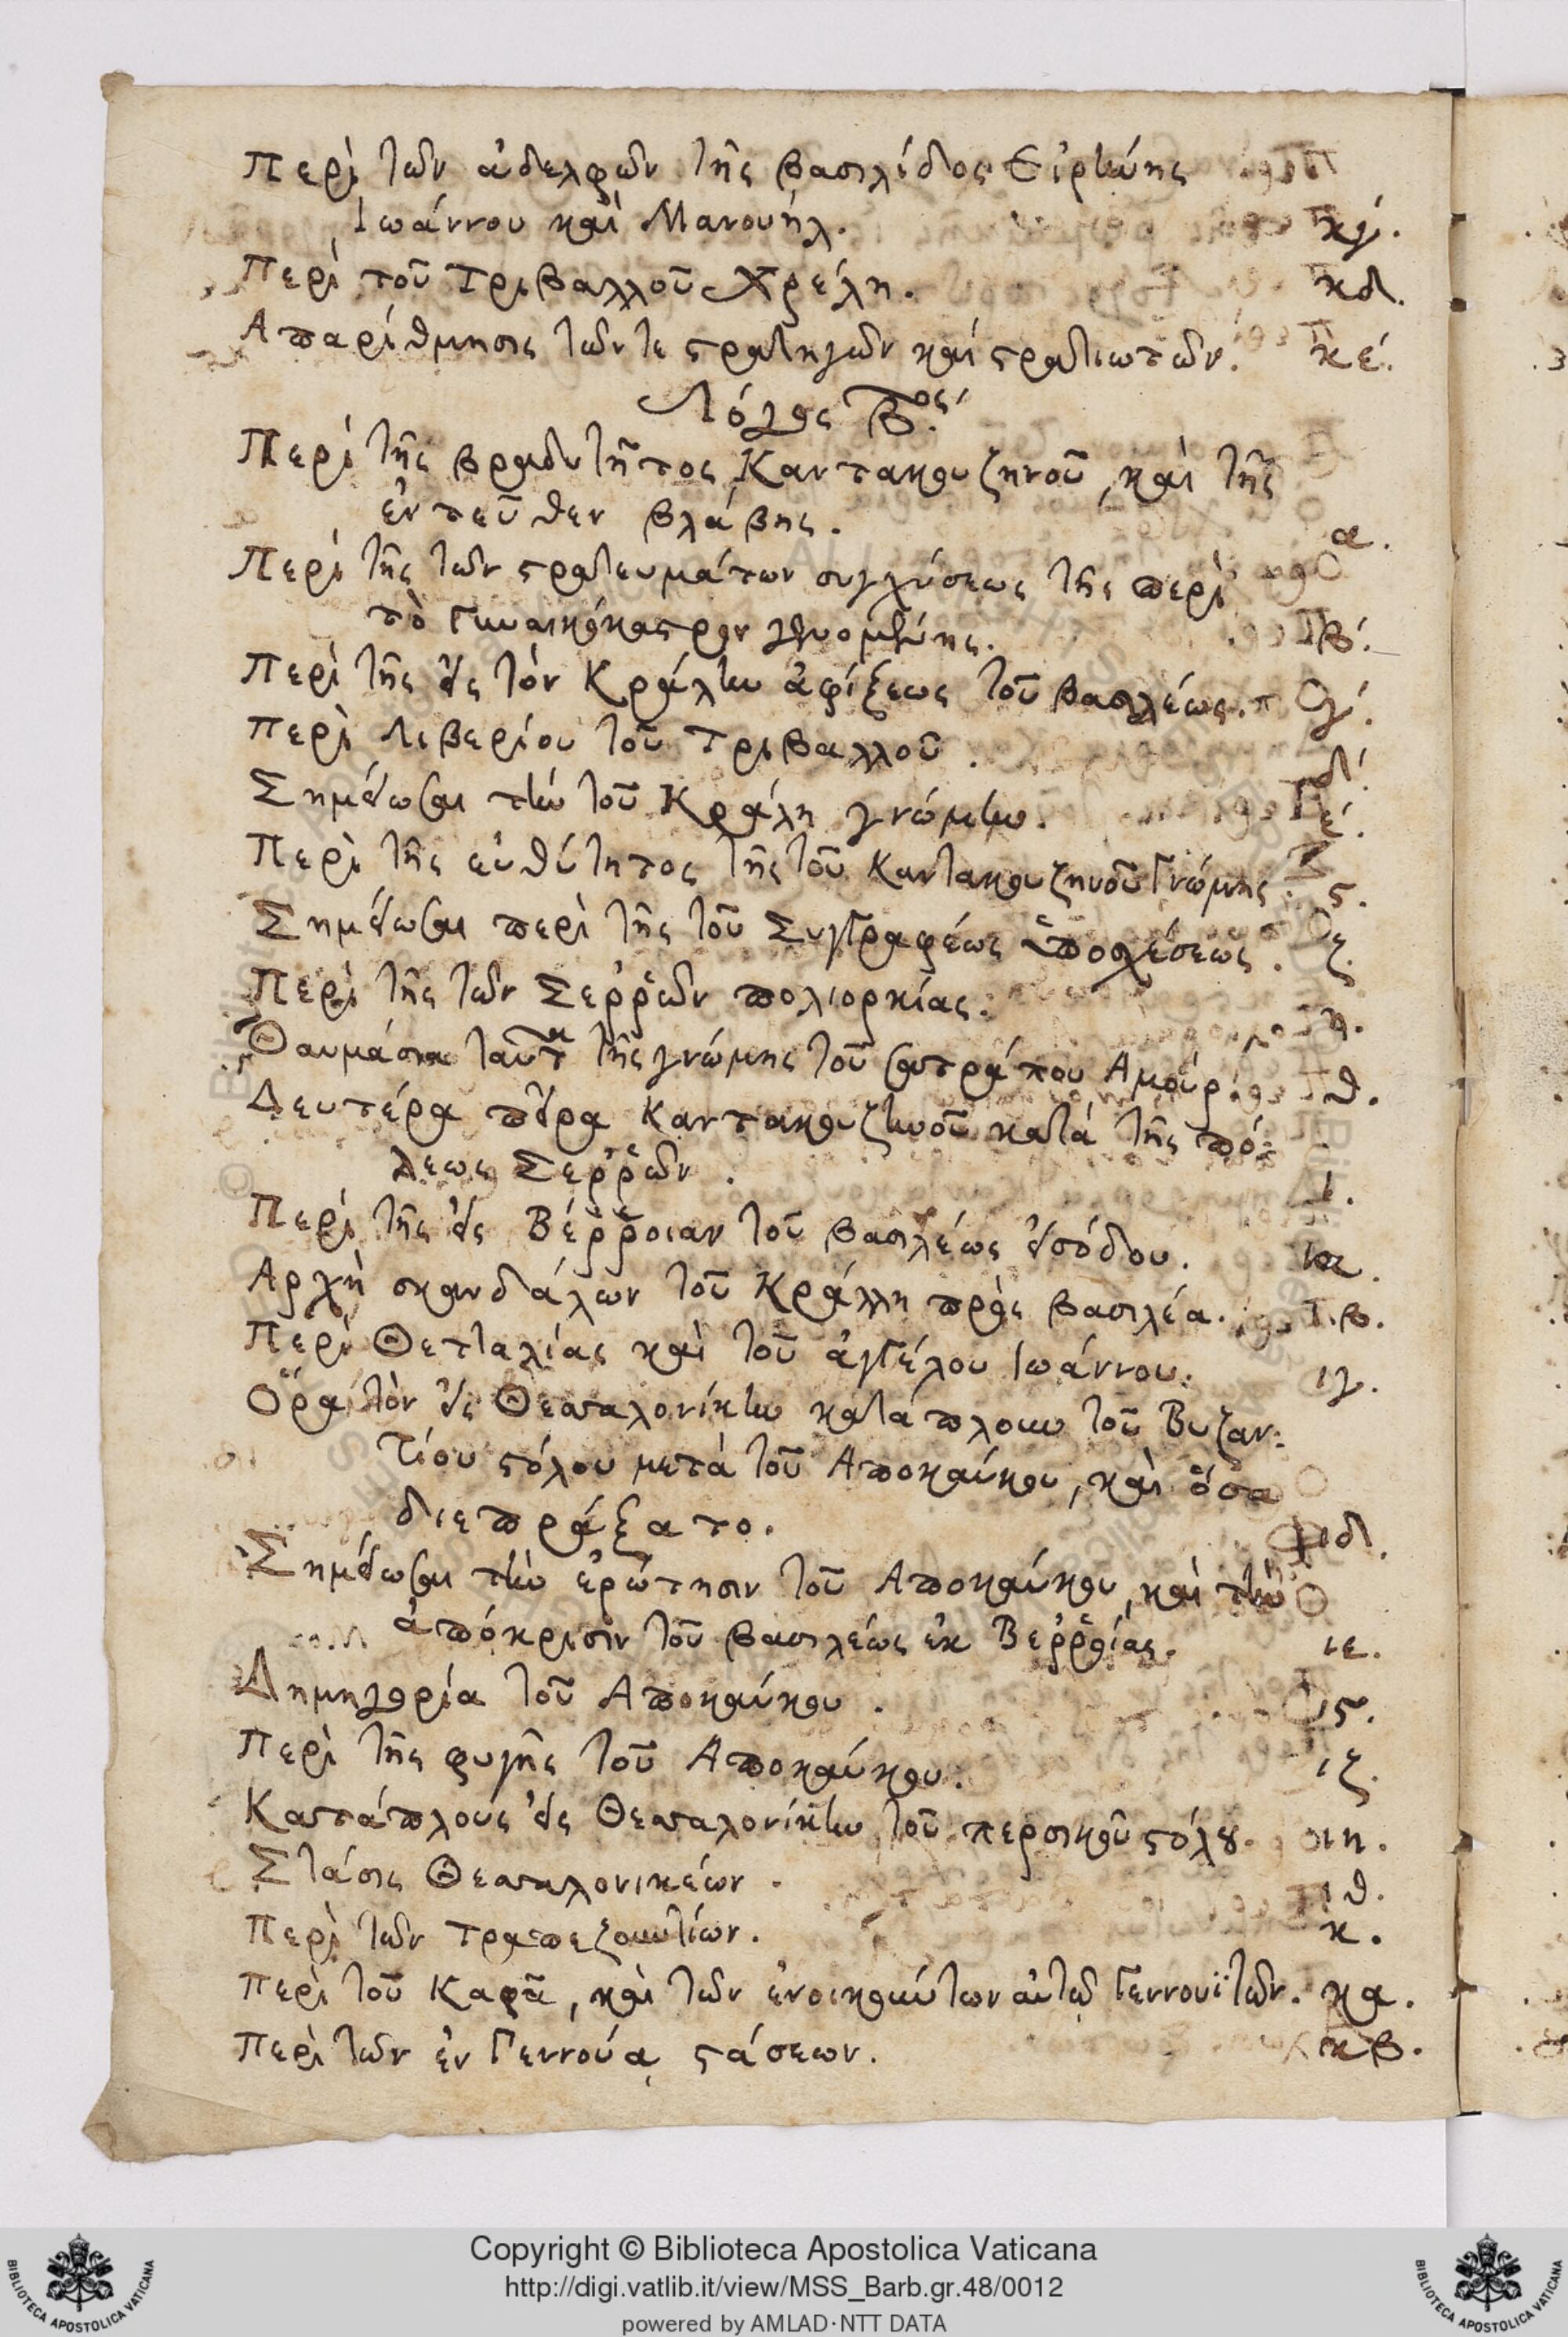 Περὶ τῶν ἀδελφῶν τῆς βασιλίδος Εἰρήνης
Ἰωάννου καὶ Μανουήλ. κγ.
Περὶ τοῦ Τριβαλλοῦ Χρέλη. κδ.
Απαρίθμησις τῶν τε στρατηγῶν καὶ στρατιωτῶν. κέ.
Λόγος Βος.
Περὶ τῆς βραδυτῆτος Καντακουζηνοῦ, καὶ τῆς
ἐντεῦθεν βλάβης. α.
Περὶ τῆς τῶν στρατευμάτων συγχύσεως τῆς περὶ
τὸ Γυναικόκαστρον γενομένης. β.
Περὶ τῆς εἰς τὸν Κράλην ἀφίξεως τοῦ βασιλέως. γ.
Περὶ Λιβερίου τοῦ Τριβαλλοῦ. δ.
Σημείωσαι τὴν τοῦ Κράλη γνώμην. έ.
Περὶ τῆς εὐθύτητος τῆς τοῦ Καντακουζηνοῦ Γνώμης ς.
Σημείωσαι περὶ τῆς τοῦ Συγγραφέως ὑποσχέσεως. ζ.
Περὶ τῆς τῶν Σερρῶν πολιορκίας. η.
Θαυμάσια ταῦτα τῆς γνώμης τοῦ σατράπου Αμούρ. θ.
Δευτέρα πεῖρα Καντακουζηνοῦ κατὰ τῆς πό-
λεως Σερρῶν. ι.
Περὶ τῆς εἰς Βέρροιαν τοῦ βασιλέως εἰσόδου. ια.
Αρχὴ σκανδάλων τοῦ Κράλλη πρὸς βασιλέα. ιβ.
Περὶ Θετταλίας καὶ τοῦ ἀγγέλου Ἰωάννου. ιγ.
Ὅρα τὸν εἰς Θεσσαλονίκην κατάπλουν τοῦ Βυζαν:
τίου στόλου μετὰ τοῦ Αποκαύκου, καὶ ὅσα
διεπράξατο. ιδ.
Σημείωσαι τὴν ἐρώτησιν τοῦ Αποκαύκου, καὶ τὴν
ἀπόκρισιν τοῦ βασιλέως ἐκ Βερροίας. ιε.
Δημηγορία τοῦ Αποκαύκου. ις.
Περὶ τῆς φυγῆς τοῦ Αποκαύκου. ιζ.
Κατάπλους εἰς Θεσσαλονίκην τοῦ περσικοῦ στόλου. ιη.
Στάσις Θεσσαλονικέων. ιθ.
Περὶ τῶν τραπεζουντίων. κ.
Περὶ τοῦ Καφᾶ, καὶ τῶν ἐνοικούντων αὐτῷ Γεννουϊτῶν. κα.
Περὶ τῶν ἐν Γεννούᾳ στάσεων. κβ.
Copyright © Biblioteca Apostolica Vaticana
http://digi.vatlib.it/view/MSS_Barb.gr.48/0012
powered by AMLAD·NTT DATA
BIBLIOTECA APOSTOLICA VATICANA
BIBLIOTECA APOSTOLICA VATICANA